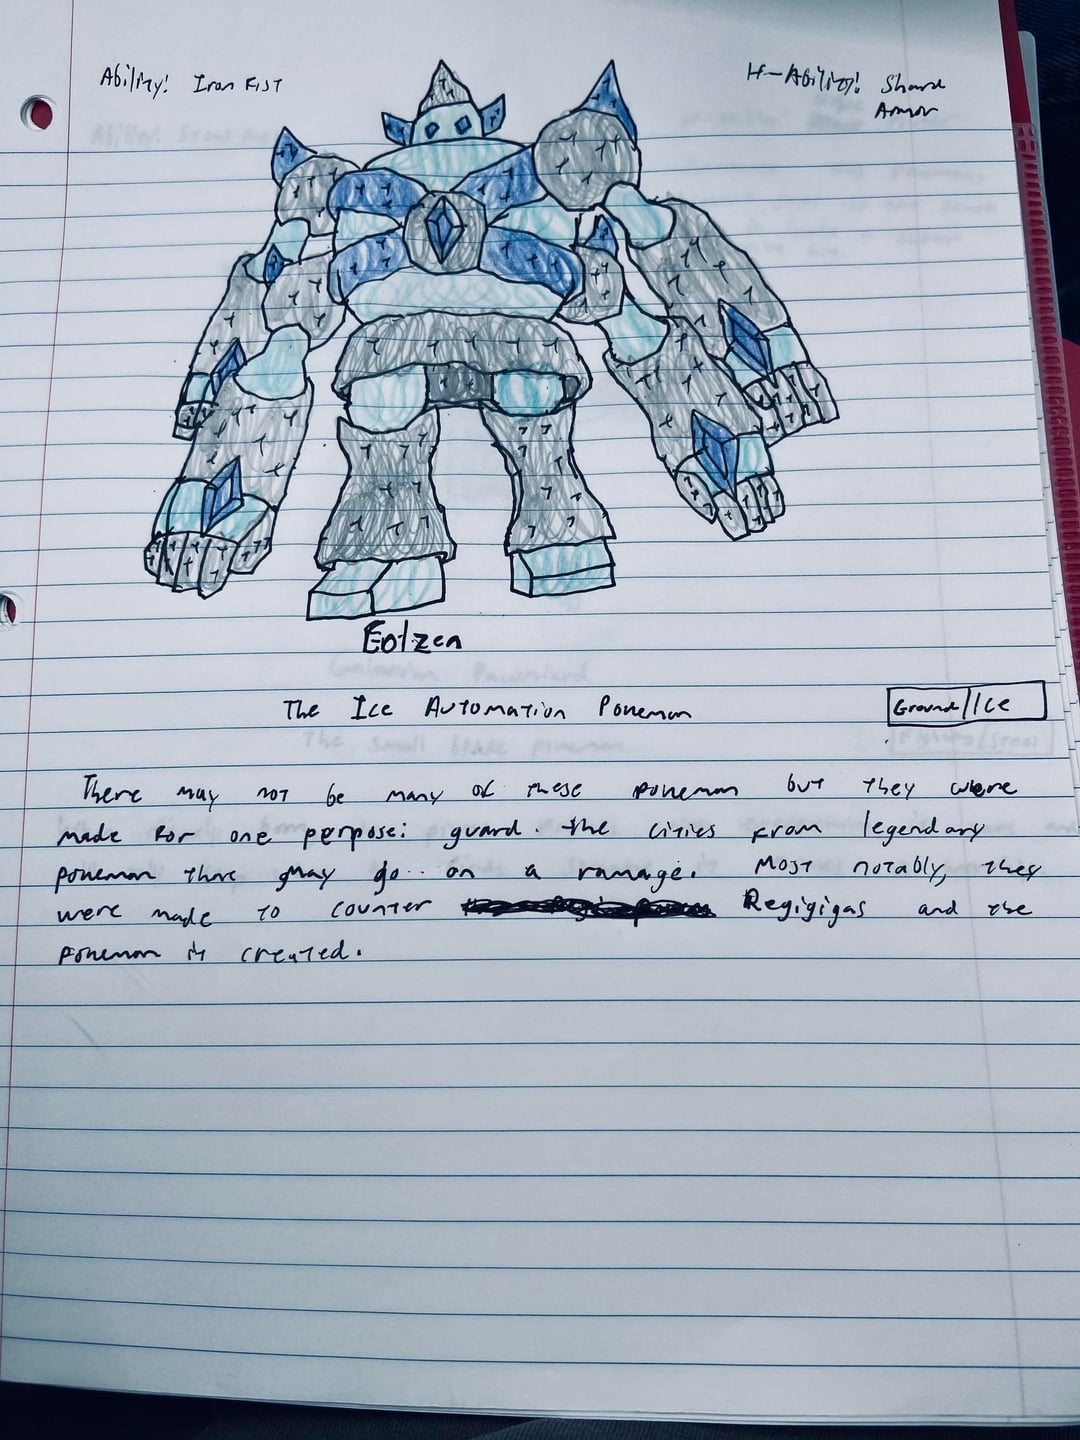 Ability! Iron Fist
H-Ability! Shard
Armor
Eolzen
The Ice Automation Pokemon
Ground/Ice
There may not be many of these pokemon but they were
made for one perpose: guard. the cities from legendary
pokemon that may go on a ramage. Most notably, they
were made to counter Regigigas and the
pokemon it created.
Galarian Pawniard
The small blade pokemon
Fighting/Steel